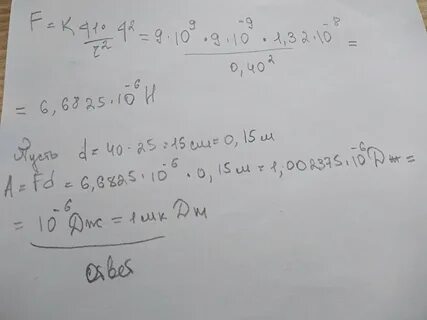 F = K q1 · q2 / r² = 9 · 10⁹ · 9 · 10⁻⁹ · 1,32 · 10⁻⁸ / 0,40² =
= 6,6825 · 10⁻⁶ Н
Пусть d = 40 - 25 = 15 см = 0,15 м
A = Fd = 6,6825 · 10⁻⁶ · 0,15 м = 1,002375 · 10⁻⁶ Дж =
= 10⁻⁶ Дж = 1 мк Дж
ответ